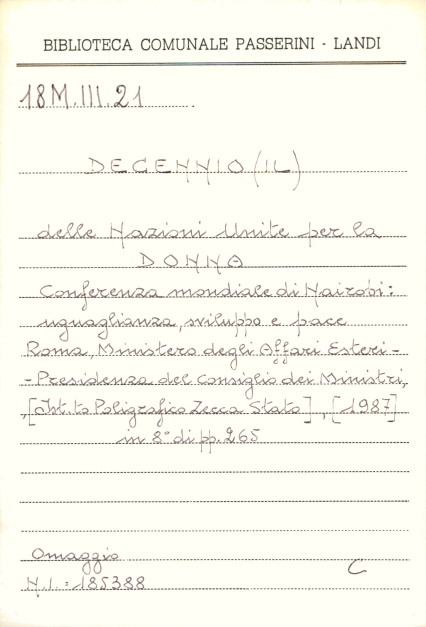 BIBLIOTECA COMUNALE PASSERINI - LANDI
18M.III.21
DECENNIO (IL)
delle Nazioni Unite per la
DONNA
Conferenza mondiale di Nairobi:
uguaglianza, sviluppo e pace
Roma, Ministero degli Affari Esteri -
- Presidenza del Consiglio dei Ministri,
[Ist.to Poligrafico Zecca Stato], [1987]
in 8° di pp. 265
Omaggio
N.I. = 185388
C